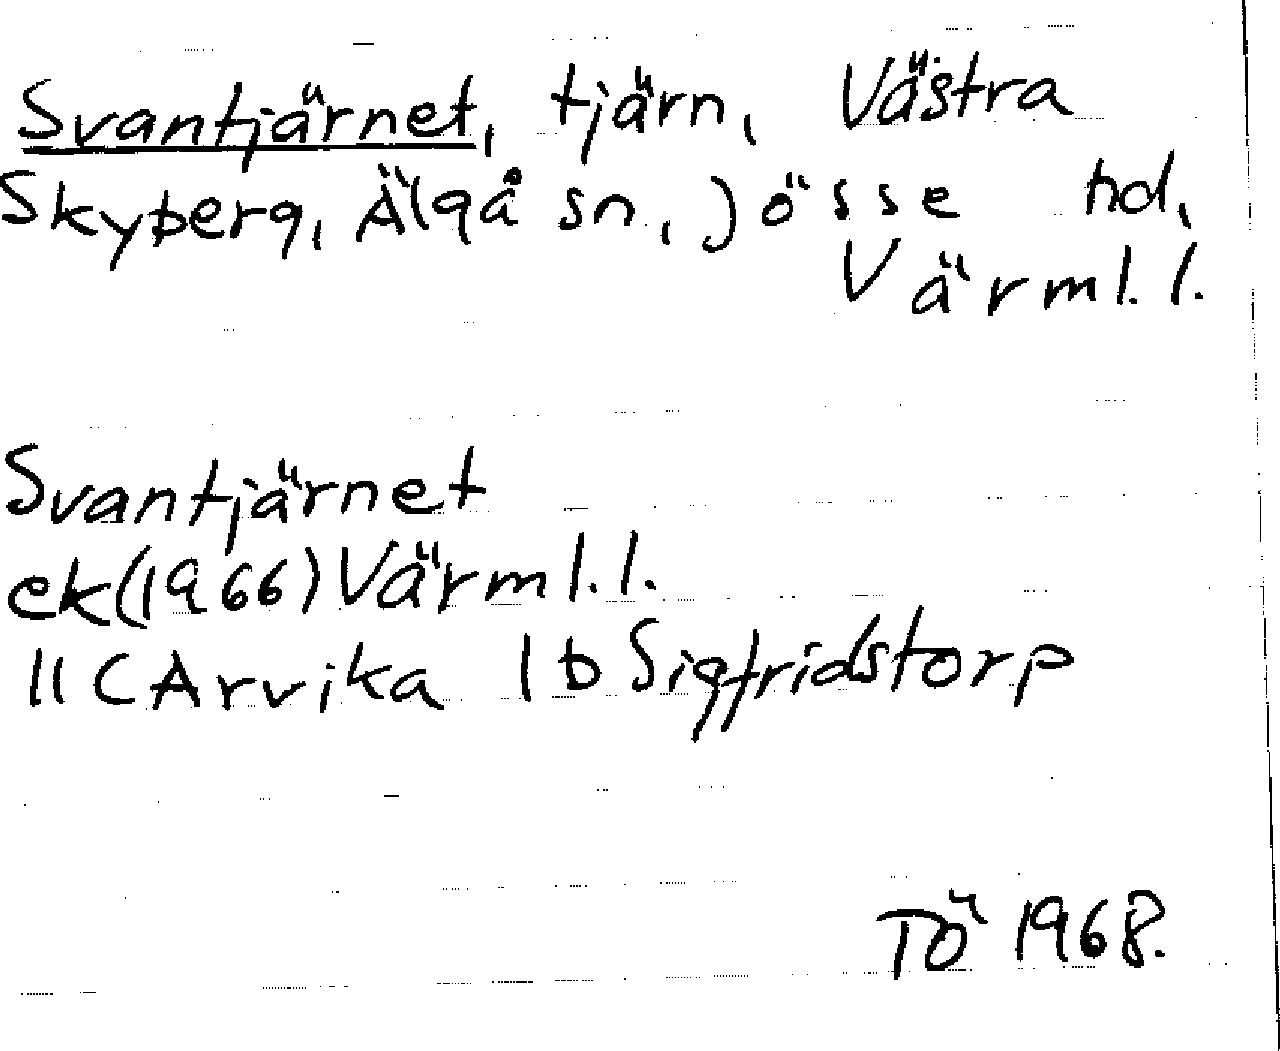 Svantjärnet, tjärn, Västra
Skyberg, Älgå sn, Jösse hd,
Värml. l.
Svantjärnet
ek(1966) Värml. l.
11C Arvika 1b Sigfridstorp
TÖ 1968.